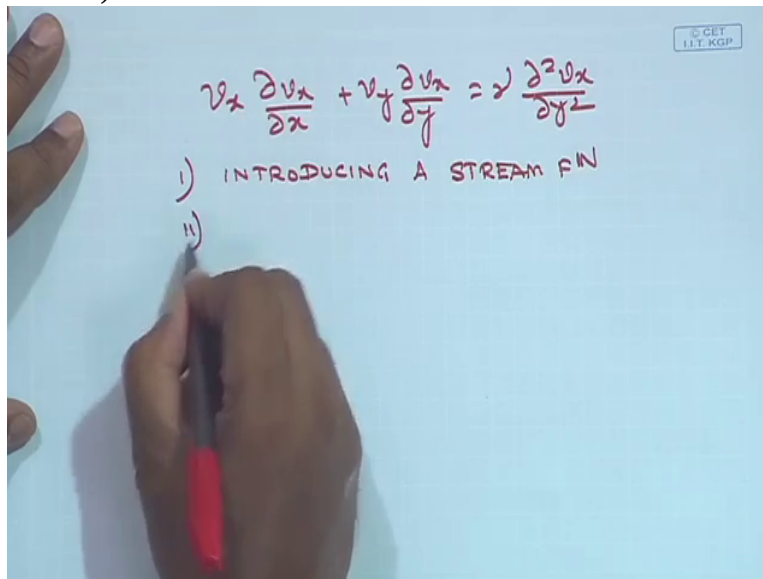 © CET
I.I.T. KGP
υx ∂υx/∂x + υy ∂υx/∂y = ν ∂²υx/∂y²
I) INTRODUCING A STREAM FⁿIN
II)